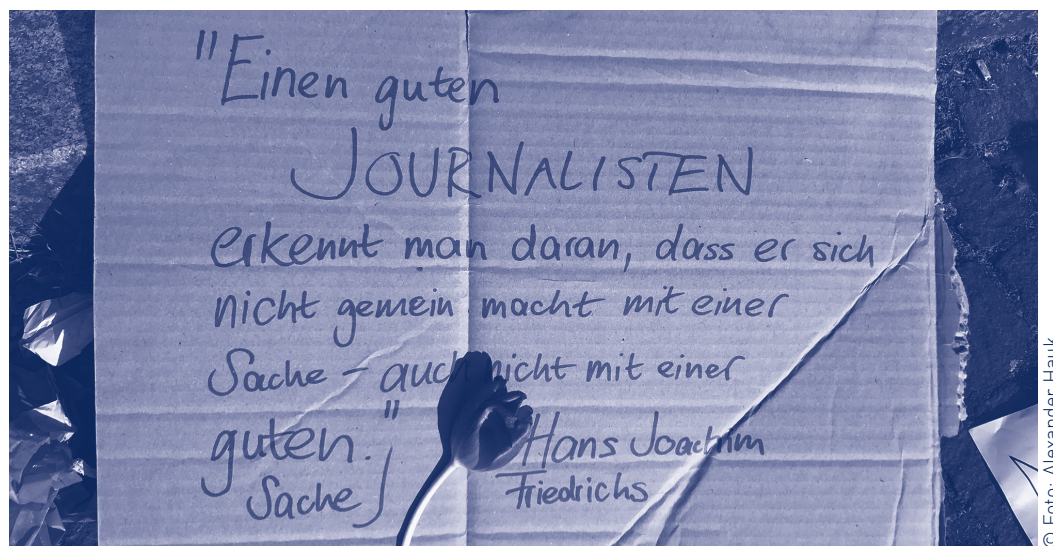 "Einen guten
JOURNALISTEN
erkennt man daran, dass er sich
nicht gemein macht mit einer
Sache – auch nicht mit einer
guten."
Sache
Hans Joachim
Friedrichs
© Foto: Alexander Hauk